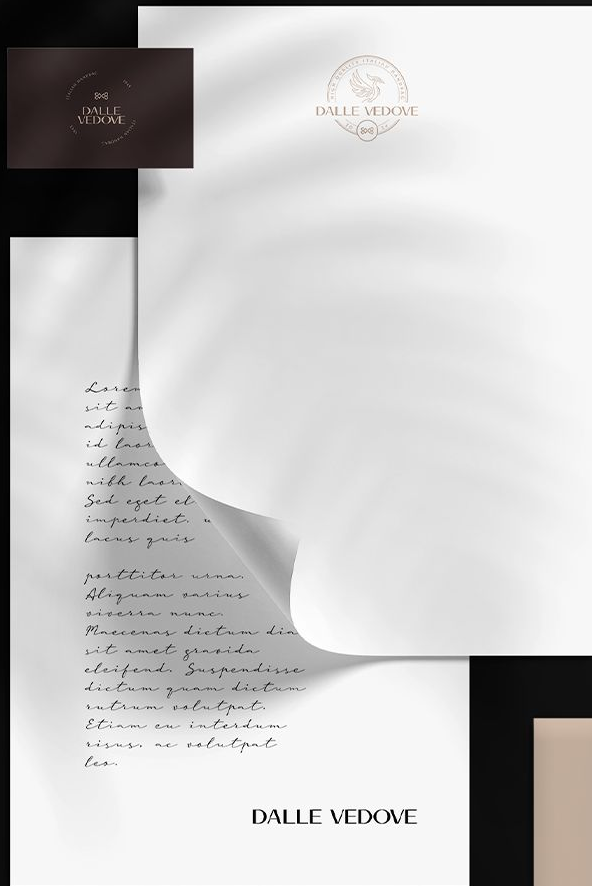 DALLE
VEDOVE
HIGH QUALITY ITALIAN HANDBAG
DALLE VEDOVE
Lorem
sit am
adipis
id laor
ullamco
nibh laor
Sed eget el
imperdiet. u
lacus quis
porttitor urna.
Aliquam varius
viverra nunc.
Maecenas dictum dia
sit amet gravida
eleifend. Suspendisse
dictum quam dictum
rutrum volutpat.
Etiam eu interdum
risus, ac volutpat
leo.
DALLE VEDOVE